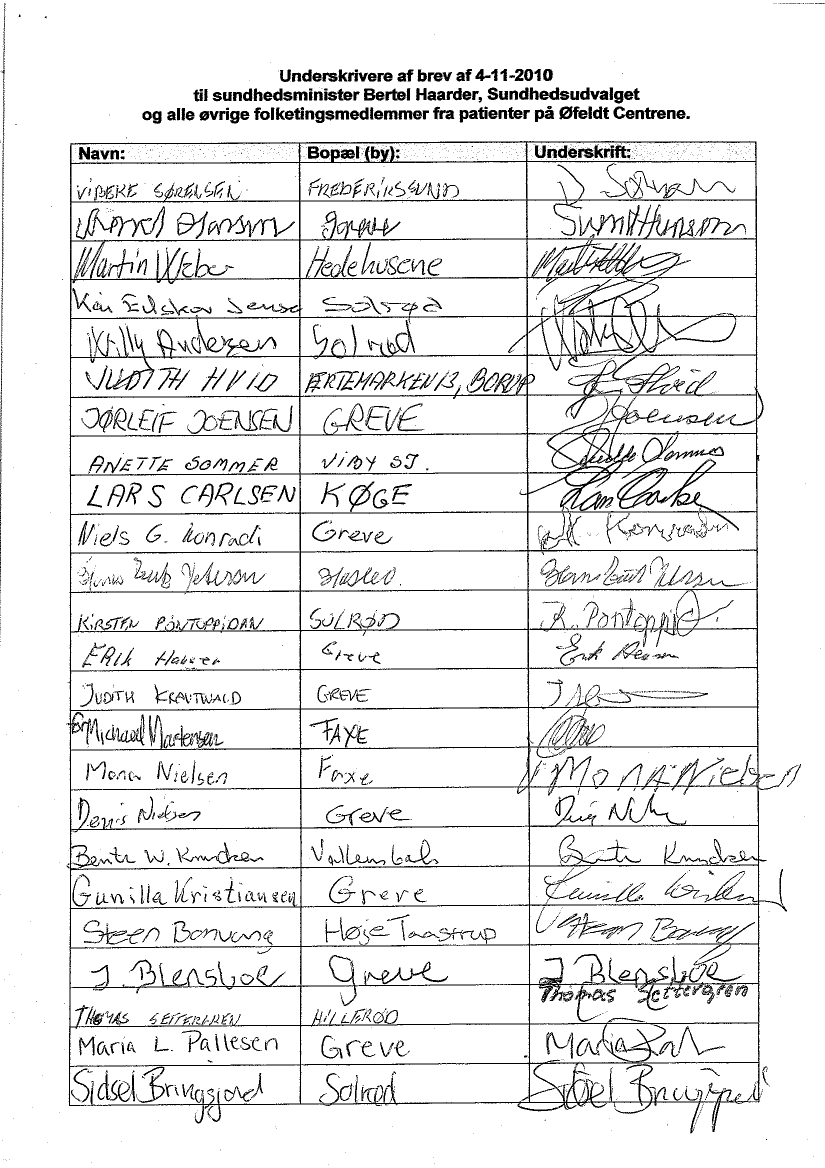 Underskrivere af brev af 4-11-2010
til sundhedsminister Bertel Haarder, Sundhedsudvalget
og alle øvrige folketingsmedlemmer fra patienter på Øfeldt Centrene.
Navn: Bopæl (by): Underskrift:
VIBEKE SØRENSEN FREDERIKSSUND
Greve
Martin Weber Hedehusene
Solrød
Willy Andersen Solrød
JUDITH HVID ÆRTEMARKEN 13, BORUP Hvid
JØRLEIF JOENSEN GREVE Joensen
ANETTE SOMMER VIBY SJ.
LARS CARLSEN KØGE
Niels G. Konradi Greve
Haslev.
KIRSTEN PONTOPPIDAN SOLRØD K. Pontoppid
ERIK Greve Erik
JUDITH KRAUTWALD GREVE
Michael Martensen FAXE
Mona Nielsen Faxe MONA Nielsen
Denis Nielsen Greve
Bente W. Knudsen Vallensbæk Bente Knudsen
Gunilla Kristiansen Greve
Steen Bonvang Høje Taastrup
J. Blensboe Greve J Blensboe
THOMAS SETTERGREN HILLERØD Thomas Settergren
Maria L. Pallesen Greve Maria
Sidsel Bringsjord Solrød Sidsel